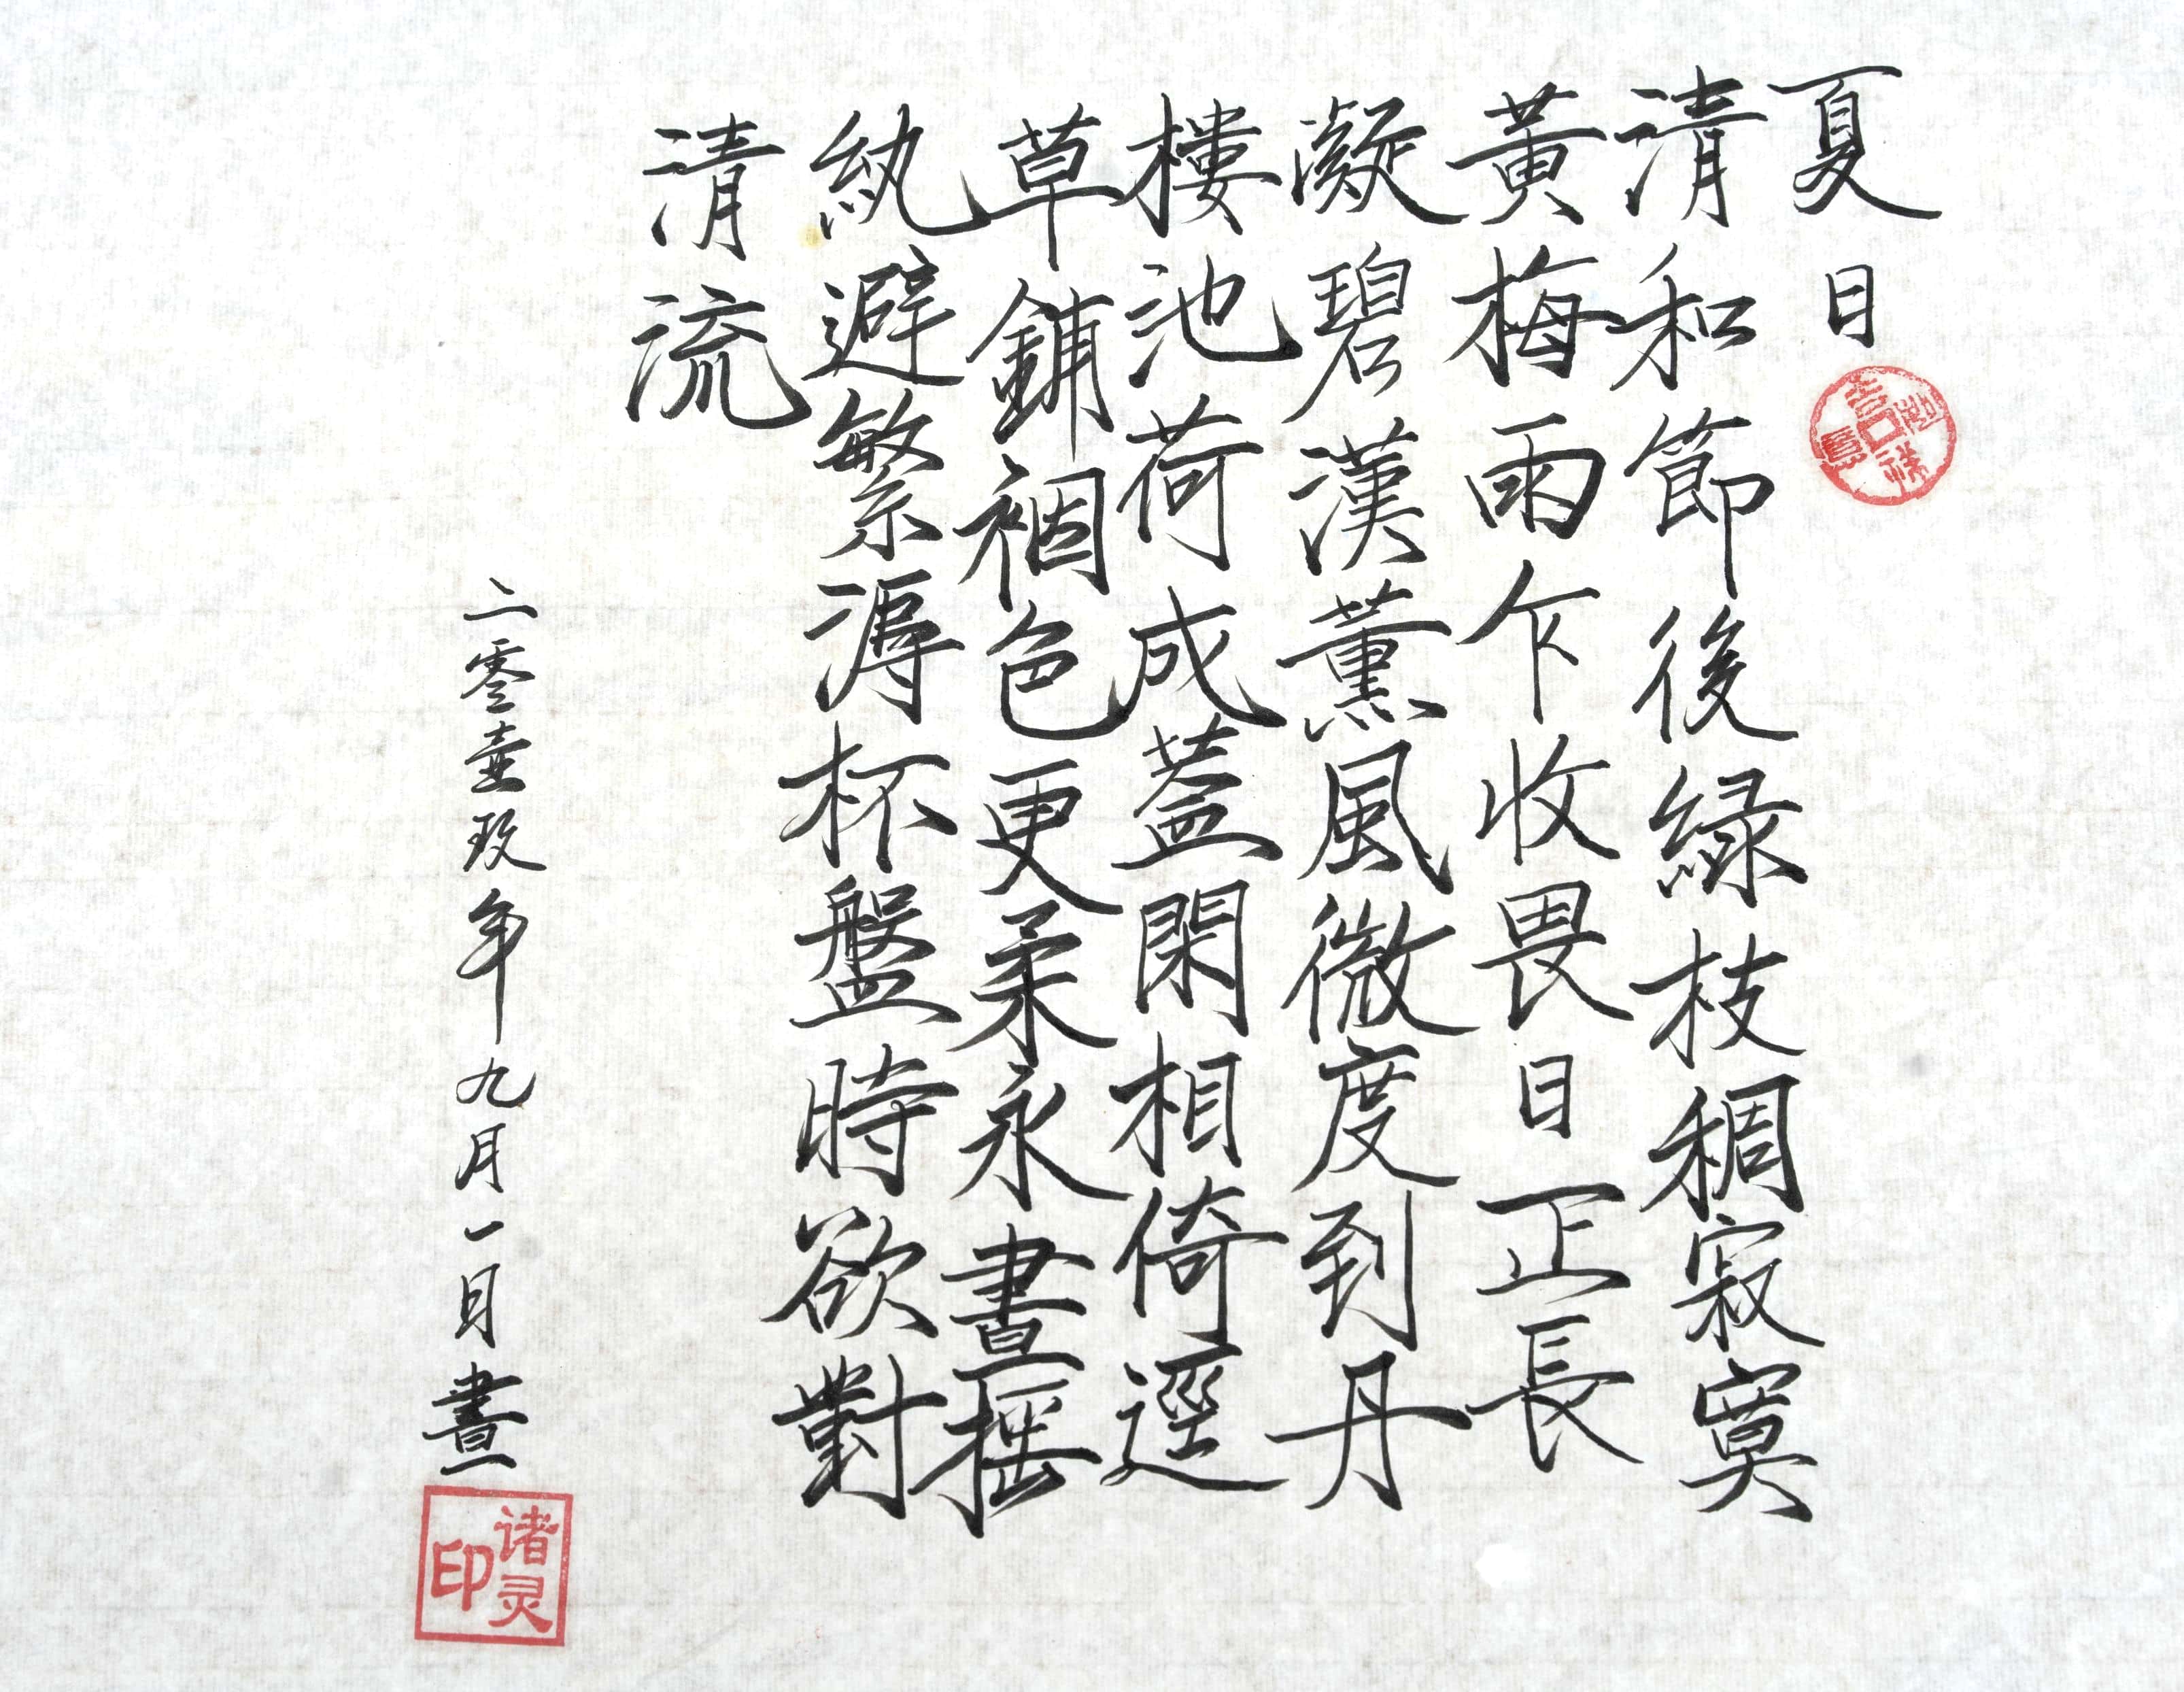 夏日
吉祥如意
清和節後緑枝稠寂寞
黄梅雨乍收畏日正長
凝碧漢薰風微度到丹
樓池荷成蓋閑相倚逕
草鋪裀色更柔永晝摇
紈避繁溽杯盤時欲對
清流
二零壹玖年九月一日晝
诸灵印